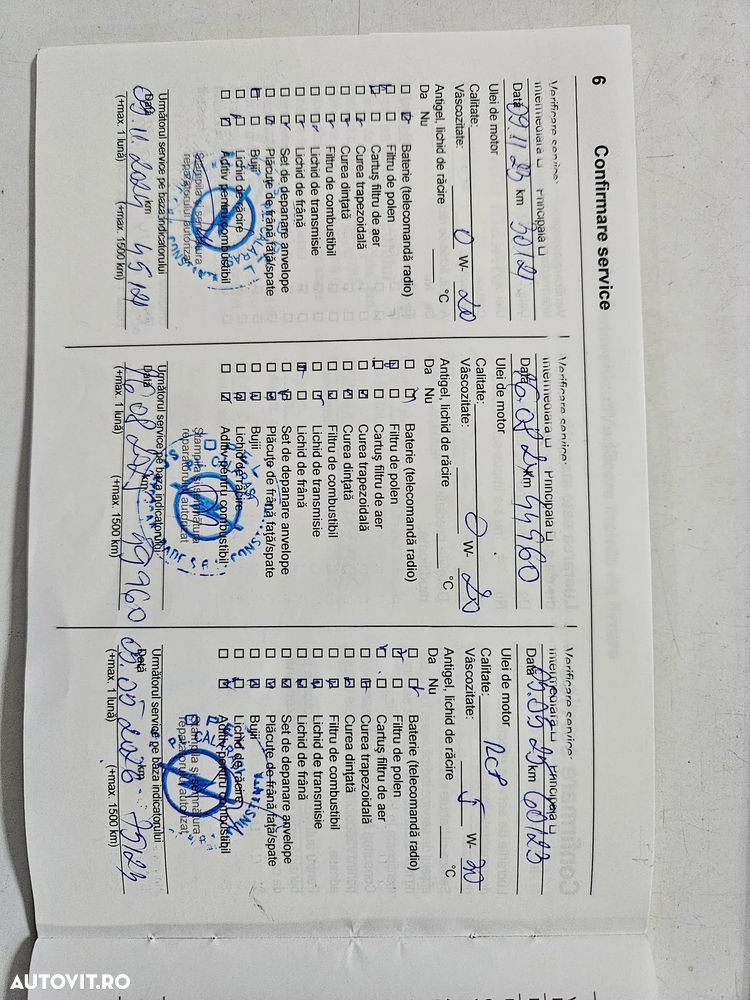 6
Confirmare service
Verificare service:
Intermediară Principală
Data 09.11.23 km 30121
Ulei de motor
Calitate:
Vâscozitate: 0 W- 20
Antigel, lichid de răcire °C
Da Nu
Baterie (telecomandă radio)
Filtru de polen
Cartuș filtru de aer
Curea trapezoidală
Curea dințată
Filtru de combustibil
Lichid de transmisie
Lichid de frână
Set de depanare anvelope
Plăcuțe de frână față/spate
Bujii
Lichid de răcire
Aditiv pentru combustibil
Ștampila și semnătura
reparatorului autorizat
Următorul service pe baza indicatorului
Dată 09.11.2024 km 45121
(+max. 1 lună) (+max. 1500 km)
Verificare service:
Intermediară Principală
Data 16.08.24 km 44960
Ulei de motor
Calitate:
Vâscozitate: 0 W- 20
Antigel, lichid de răcire °C
Da Nu
Baterie (telecomandă radio)
Filtru de polen
Cartuș filtru de aer
Curea trapezoidală
Curea dințată
Filtru de combustibil
Lichid de transmisie
Lichid de frână
Set de depanare anvelope
Plăcuțe de frână față/spate
Bujii
Lichid de răcire
Aditiv pentru combustibil
Ștampila și semnătura
reparatorului autorizat
Următorul service pe baza indicatorului
Dată 16.08 km
(+max. 1 lună) (+max. 1500 km)
Verificare service:
Intermediară Principală
Data 05.25 km 60123
Ulei de motor
Calitate:
Vâscozitate: 5 W-
Antigel, lichid de răcire °C
Da Nu
Baterie (telecomandă radio)
Filtru de polen
Cartuș filtru de aer
Curea trapezoidală
Curea dințată
Filtru de combustibil
Lichid de transmisie
Lichid de frână
Set de depanare anvelope
Plăcuțe de frână față/spate
Bujii
Lichid de răcire
Aditiv pentru combustibil
Ștampila și semnătura
reparatorului autorizat
Următorul service pe baza indicatorului
Dată 05.2026 km 75123
(+max. 1 lună) (+max. 1500 km)
AUTOVIT.RO